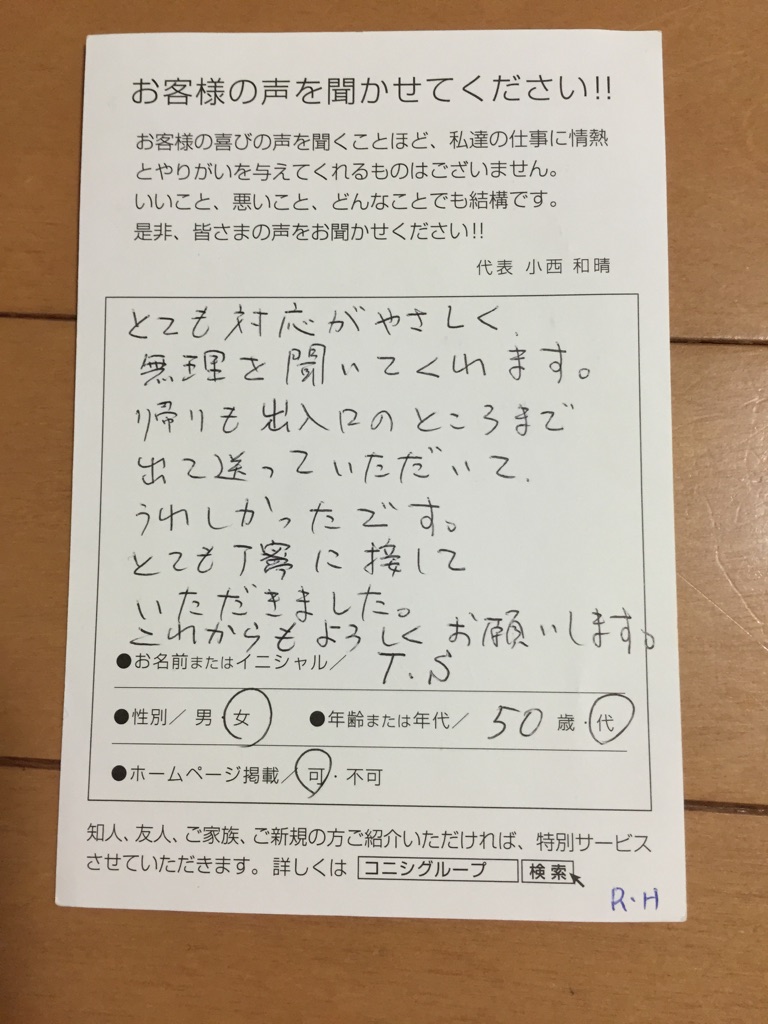 お客様の声を聞かせてください!!
お客様の喜びの声を聞くことほど、私達の仕事に情熱
とやりがいを与えてくれるものはございません。
いいこと、悪いこと、どんなことでも結構です。
是非、皆さまの声をお聞かせください!!
代表 小西 和晴
とても対応がやさしく、
無理を聞いてくれます。
帰りも出入口のところまで
出て送っていただいて、
うれしかったです。
とても丁寧に接して
いただきました。
これからもよろしくお願いします。
●お名前またはイニシャル/ T.S
●性別/ 男・女 ●年齢または年代/ 50 歳・代
●ホームページ掲載/可・不可
知人、友人、ご家族、ご新規の方ご紹介いただければ、特別サービス
させていただきます。詳しくは コニシグループ 検索
R・H